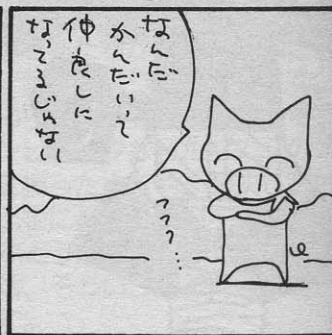 なんだ
かんだいって
仲良しに
なってるじゃない
フフフ…